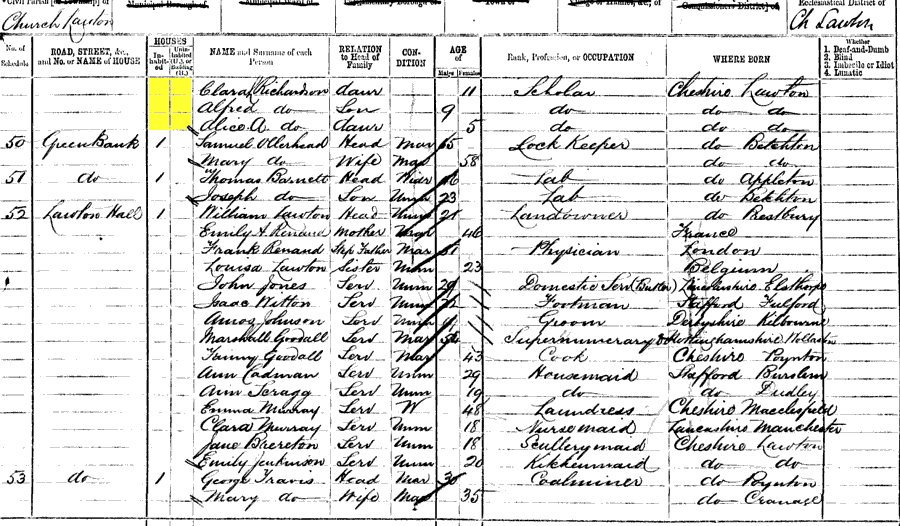 Civil Parish [or Township] of
Municipal Borough of
Ecclesiastical District of
Church Lawton
Ch Lawton
No. of Schedule | ROAD, STREET, &c., and No. or NAME of HOUSE | HOUSES Inhabited | Uninhabited (U.), or Building (B.) | NAME and Surname of each Person | RELATION to Head of Family | CONDITION | AGE Males | Females | Rank, Profession, or OCCUPATION | WHERE BORN | Whether 1. Deaf-and-Dumb 2. Blind 3. Imbecile or Idiot 4. Lunatic
Clara Richardson daur 11 Scholar Cheshire Lawton
Alfred do Son 9 do do do
Alice A. do daur 5 do do do
50 Green Bank 1 Samuel Ollerhead Head Mar 65 Lock Keeper do Betchton
Mary do Wife Mar 58 do do
51 do 1 Thomas Barnett Head Widr Lab do Appleton
Joseph do Son Unm 23 Lab do Betchton
52 Lawton Hall 1 William Lawton Head Unm 21 Landowner do Prestbury
Emily A Renaud Mother 46 France
Frank Renaud Step Father Mar 51 Physician London
Louisa Lawton Sister Unm 23 Belgium
John Jones Serv Unm 29 Domestic Serv (Butler) Lincolnshire Elsthorpe
Isaac Witton Serv Unm 22 Footman Stafford Fulford
Amos Johnson Serv Unm Groom Derbyshire Kilbourne
Marshall Goodall Serv Mar 54 Supernumerary Nottinghamshire Wollaton
Fanny Goodall Serv Mar 43 Cook Cheshire Poynton
Ann Cadman Serv Unm 29 Housemaid Stafford Burslem
Ann Scragg Serv Unm 19 do do Dudley
Emma Murray Serv W 48 Laundress Cheshire Macclesfield
Clara Murray Serv Unm 18 Nursemaid Lancashire Manchester
Jane Brereton Serv Unm 18 Scullerymaid Cheshire Lawton
Emily Jenkinson Serv Unm 20 Kitchenmaid do do
53 do 1 George Travis Head Mar 30 Coalminer do Poynton
Mary do Wife Mar 35 do Cranage